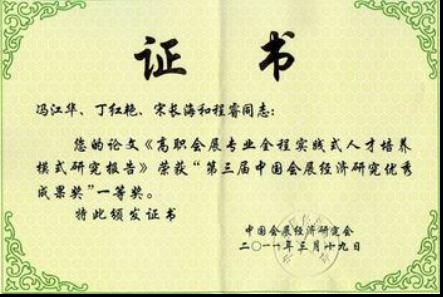 证书
冯江华、丁红艳、宋长海和程睿同志:
您的论文《高职会展专业全程实践式人才培养
模式研究报告》荣获“第三届中国会展经济研究优秀
成果奖”一等奖。
特此颁发证书
中国会展经济研究会
二〇一一年三月十九日